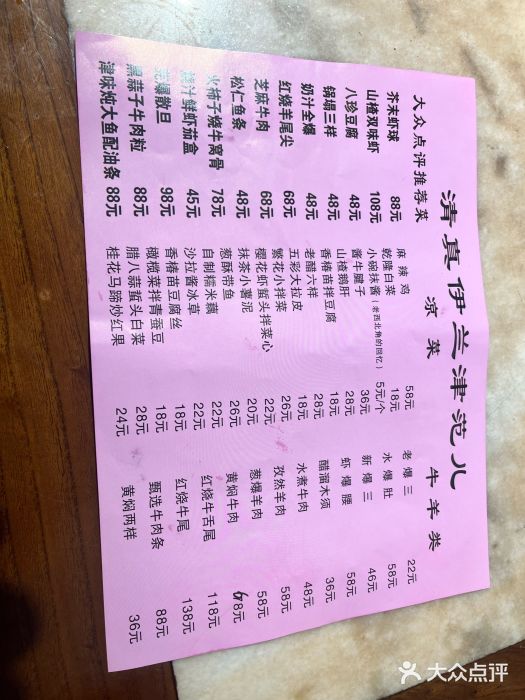 清真伊兰津范儿
大众点评推荐菜
芥末虾球 88元
山楂观味虾 108元
八珍豆腐 48元
锅塌三样 48元
奶汁全爆 48元
红烧羊尾尖 68元
芝麻牛肉 68元
松仁鱼条 48元
火柿子烧牛窝骨 78元
汁鲜虾茄盒 45元
芫爆散旦 98元
黑蒜子牛肉粒 88元
津味炖大鱼配油条 88元
凉菜
麻辣鸡 58元
乾隆白菜 18元
小碗扶酱(老西北角的回忆) 5元/个
酱牛腱子 36元
山楂鹅肝 28元
香椿苗拌豆腐 18元
老醋六样 28元
五彩大拉皮 18元
繁花小拌菜 26元
樱花虾蜇头拌菜心 22元
抹茶小薯泥 20元
葱酥带鱼 26元
自制糯米藕 22元
沙拉酱冰草 22元
香椿苗豆腐丝 18元
橄榄菜拌青蚕豆 18元
腊八蒜蜇头白菜 28元
桂花马蹄炒红果 24元
牛羊类
老爆三 22元
水爆肚 58元
新爆三 46元
虾爆腰 58元
醋溜木须 36元
水煮牛肉 48元
孜然羊肉 58元
葱爆羊肉 58元
黄焖牛肉 68元
红烧牛舌尾 118元
红烧牛尾 138元
甄选牛肉条 88元
黄焖两样 36元
大众点评